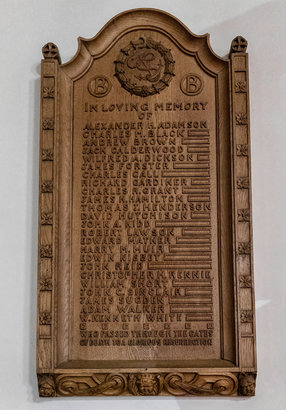 B B
IN LOVING MEMORY
OF
ALEXANDER H. ADAMSON
CHARLES M. BLACK
ANDREW BROWN
JACK CALDERWOOD
WILFRED A. DICKSON
JAMES FORSTER
CHARLES GALL
RICHARD GARDINER
CHARLES R. GRANT
JAMES H. HAMILTON
THOMAS J. HENDERSON
DAVID HUTCHISON
JOHN A. KIDD
ROBERT LAWSON
EDWARD MAYNER
HARRY M. MUIR
EDWIN NISBET
JOHN REID
CHRISTOPHER H. RENNIE
WILLIAM SHORT
JOHN C. SINCLAIR
JAMES SUGDEN
ADAM WALKER
W. KENNETH WHITE
WHO PASSED THROUGH THE GATES
OF DEATH TO A GLORIOUS RESURRECTION